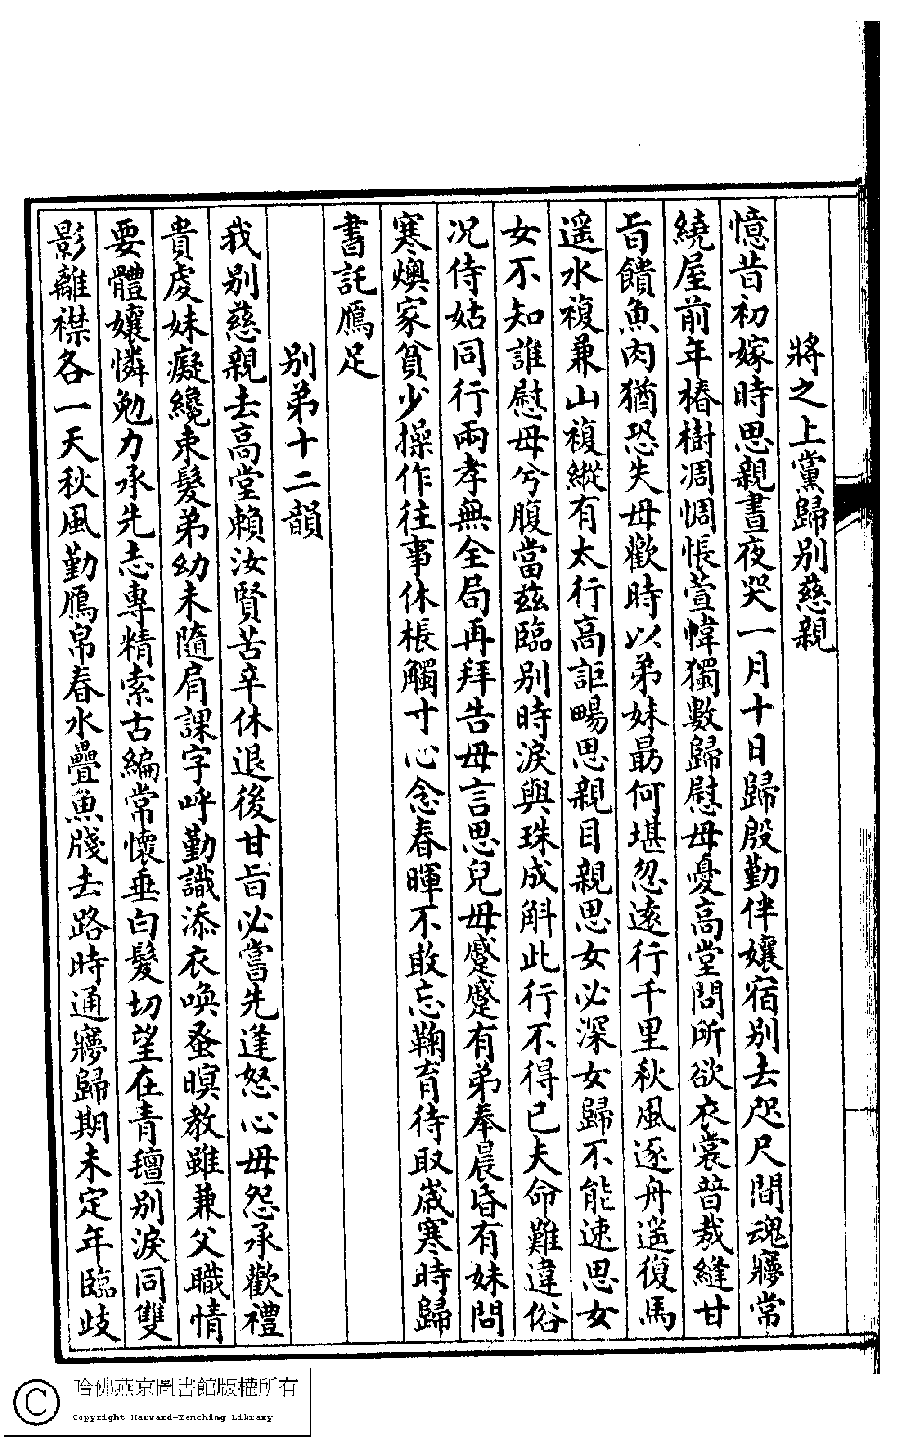 將之上黨歸别慈親
憶昔初嫁時思親晝夜哭一月十日歸殷勤伴孃宿别去咫尺間魂寢常
繞屋前年椿樹凋惆悵萱幃獨數歸慰母憂高堂問所欲衣裳普裁縫甘
旨饋魚肉猶恐失母歡時以弟妹勗何堪忽遠行千里秋風逐舟遥復馬
遥水複兼山複縱有太行高詎暢思親目親思女必深女歸不能速思女
女不知誰慰母兮腹當兹臨别時淚與珠成斛此行不得已夫命難違俗
况侍姑同行兩孝無全局再拜告母言思兒毋蹙蹙有弟奉晨昏有妹問
寒燠家貧少操作往事休棖觸寸心念春暉不敢忘鞠育待取歲寒時歸
書託鴈足
别弟十二韻
我别慈親去高堂賴汝賢苦辛休退後甘旨必嘗先逢怒心毋怨承歡禮
貴虔妹癡纔束髮弟幼未隨肩課字呼勤識添衣喚蚤暝教雖兼父職情
要體孃憐勉力承先志專精索古編常懷垂白髮切望在青氊别淚同雙
影離襟各一天秋風勤鴈帛春水疊魚牋去路時通寢歸期未定年臨歧
哈佛燕京圖書館版權所有
Copyright Harvard-Yenching Library